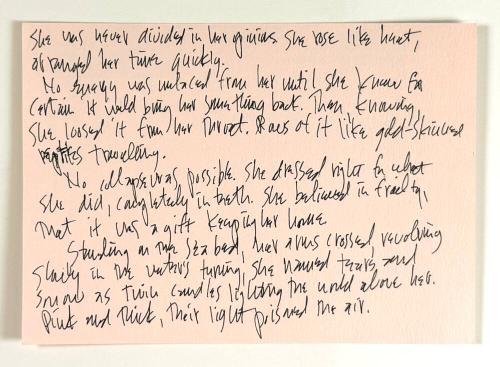 She was never divided in her opinions. She rose like heat,
arranged her time quickly.
No energy was unlaced from her until she knew for
certain it would bring her something back. Then, knowing,
she loosed it from her throat. Rows of it like gold-skinned
traveling.
No collapse was possible. She dressed right for what
she did, completely in teeth. She believed in frailty,
that it was a gift keeping her home
Standing on the sea bed, her arms crossed, revolving
slowly in the water's turning, she named tears and
snow as twin candles lighting the world above her.
Pink and thick, their light prismed the air.